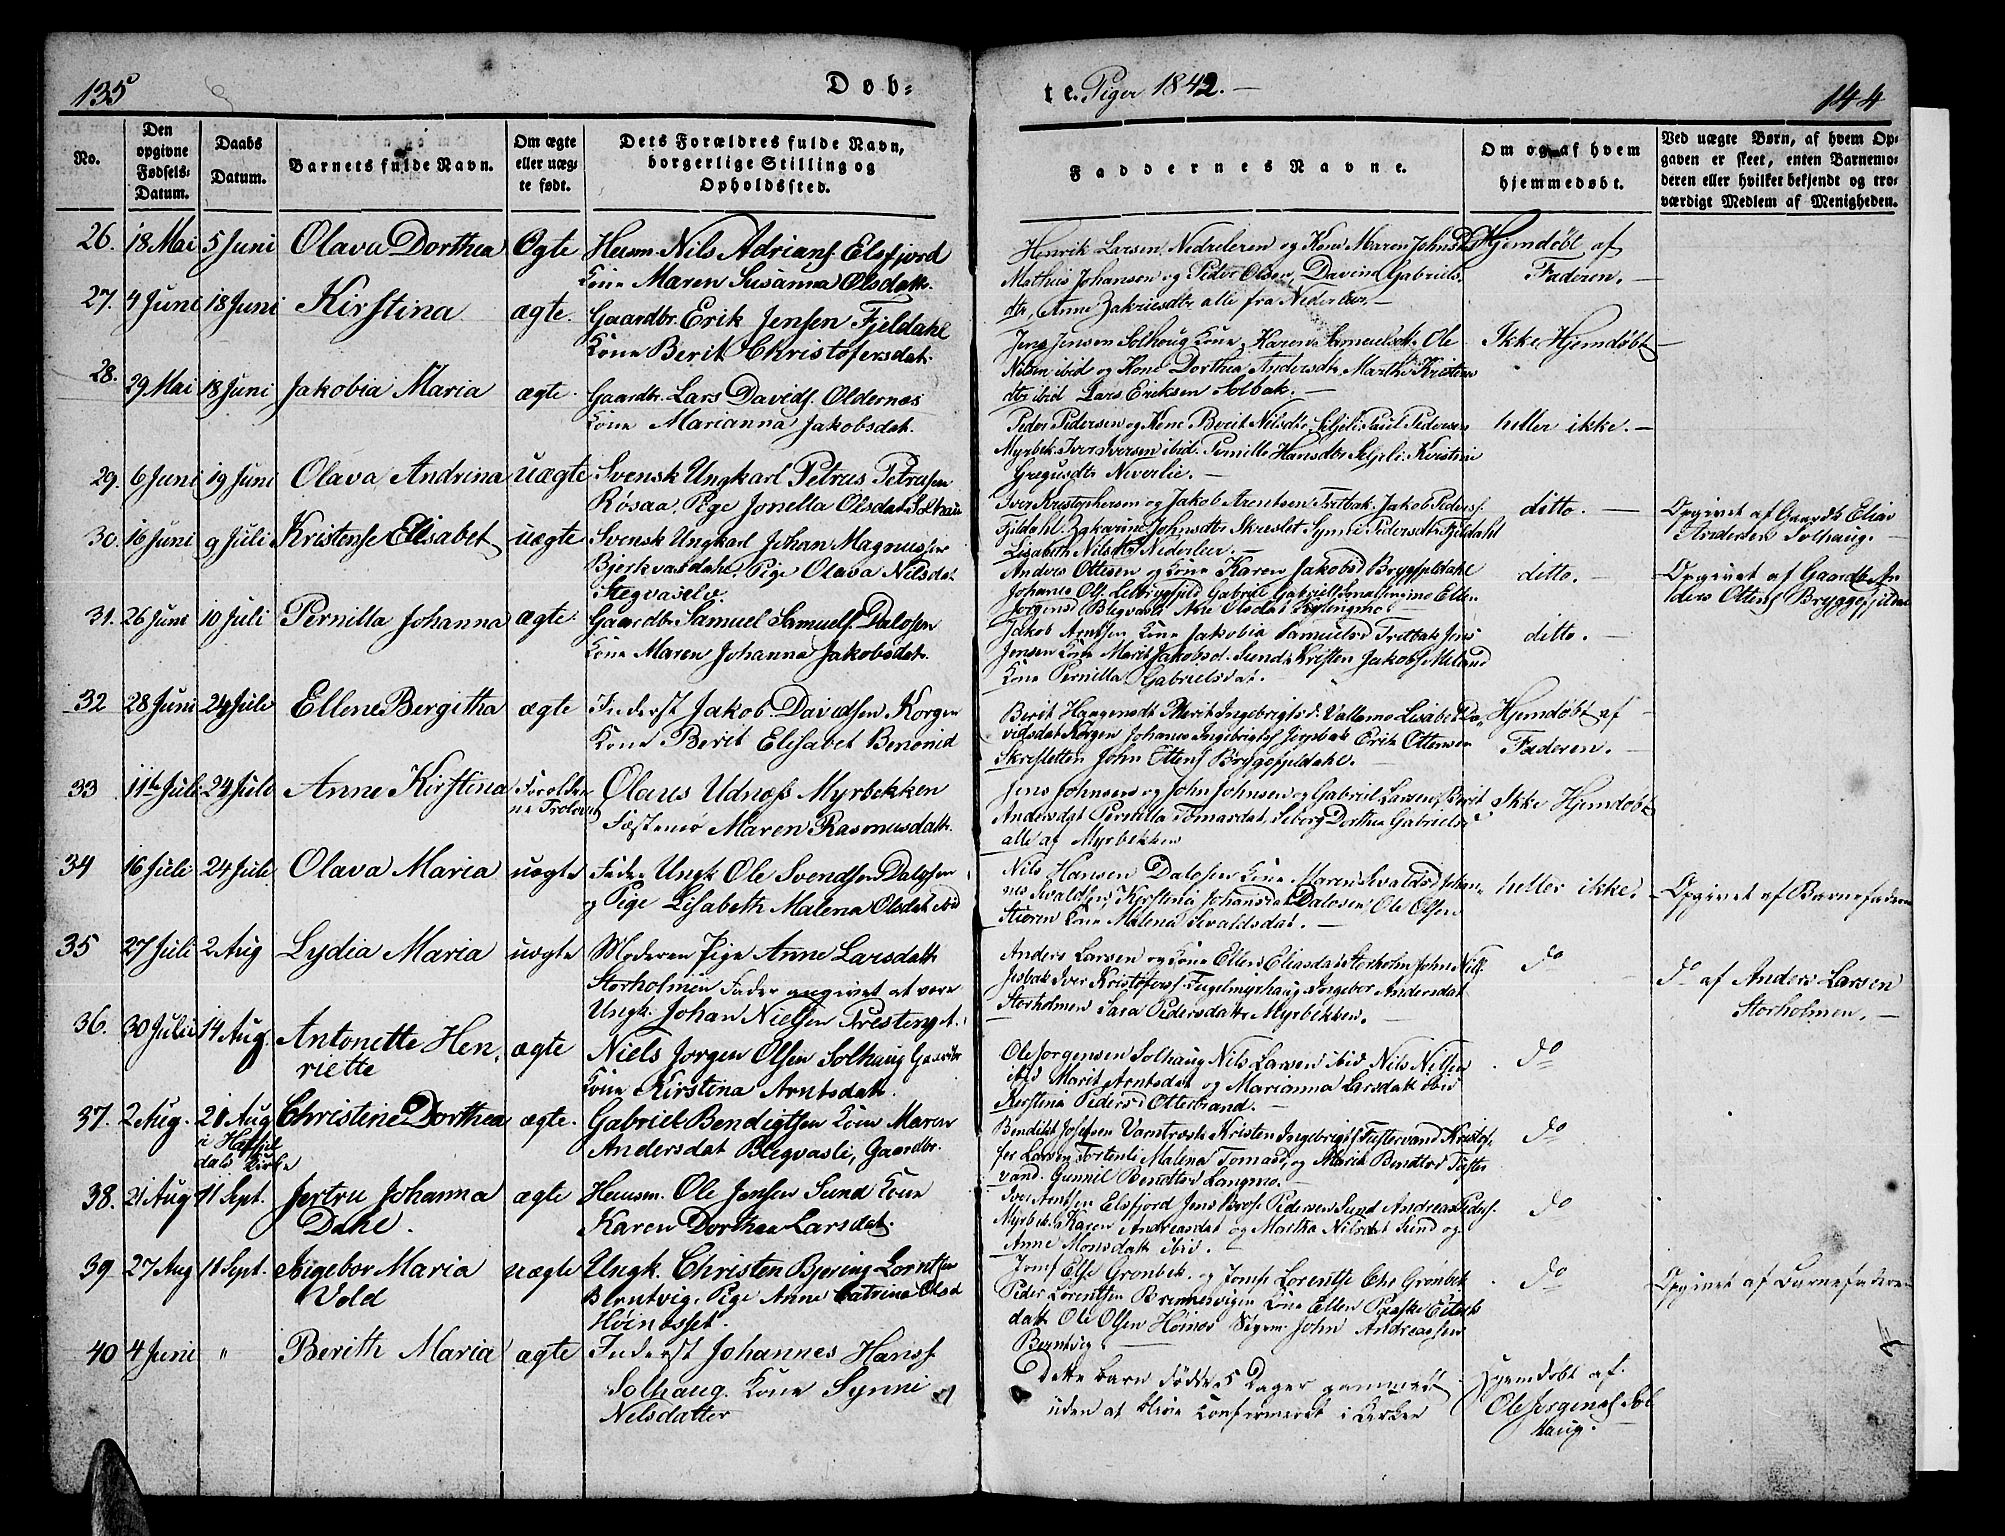 135
Døb-
te Piger 1842. —
144
No.
Den opgivne Fødsels-Datum.
Daabs Datum.
Barnets fulde Navn.
Om ægte eller uægte født.
Dets Forældres fulde Navn, borgerlige Stilling og Opholdssted.
Faddernes Navne.
Om og af hvem hjemmedøbt.
Ved uægte Børn, af hvem Opgaven er skeet, enten Barnemoderen eller hvilket bekjendt og troværdigt Medlem af Menigheden.
26. 18 Mai 5 Juni Olava Dorthea Ægte Huusm. Nils Adrians. Elsfjord
Kone Maren Susanna Olsdatt.
Henrik Larsen Nederleren og Kone Maren Johnsd
Mathis Johansen og Peder Olsen, Davina Gabriels-
dtr, Anne Zakriesdtr alle fra Nederleer. —
Hjemdøbt af
Faderen. —
27. 4 Juni 18 Juni Kirstina ægte. Gaardbr. Erik Jensen Fjeldahl
Kone Berit Christofersdat.
Jens Jensen Solhoug Kone Karen Samuelsdt. Ole
Nilsen ibid og Kone Dorthea Andersdtr, Martha Kristens
dtr ibid Lars Eriksen Solbak. —
Ikke Hjemdøbt —
28. 29 Mai 18 Juni Jakobia Maria ægte. Gaardbr. Lars Davids. Oldernæs
Kone Marianna Jakobsdat.
Peder Pedersen og Kone Berit Nilsdtr Seljeli Paul Pedersen
Myrbek Iver Iversen ibid. Pernille Hansdtr Seljeli Kristine
Gregusdtr Neverlie. —
heller ikke. —
29. 6 Juni 19 Juni Olava Andrina uægte Svensk Ungkarl Petrus Petrusen
Røsaa, Pige Jonella Olsdat Solhau
Iver Kristophersen og Jakob Arentsen Fretbak Jakob Peders.
Fjeldahl Zakarine Johnsdtr Skreslet Synne Pedersdtr Fjeldahl
Lisabeth Nilsdtr Nederleer. —
ditto. —
Opgivet af Gaardb. Elias
Andersen Solhaug. —
30. 16 Juni 9 Juli Kristense Elisabet uægte Svensk Ungkarl Johan Magnussen
Bjerkvasdahl. Pige Olava Nilsdat
Stegvaselv.
Anders Ottesen og Kone Karen Jakobsd Bryggfjeldahl
Johanes Ols. Gabriel Ellen
Jorgensd
ditto. —
Opgivet af Gaardb. An
ders Ottens Bryggefjeldal
31. 26 Juni 10 Juli Pernilla Johanna ægte. Gaardbr Samuel Samuels. Dalosen
Kone Maren Johanna Jakobsdat.
Jakob Arntsen Kone Jakobia Samuelsd Fretbak Jens
Jensen Kone Marit Jakobsd. Sund Kristen Jakobs.
Kone Pernilla Gabrielsdat. —
ditto. —
32 28 Juni 24 Juli Ellene Bergitha ægte Inderst Jakob Davidsen Korgen
Kone Berit Elisabet Benonid
Berit Haagensdt Marit Ingebrigtsd. Vallemo Lisabet Da-
vidsdat Korgen Johanes Ingebrigts Jerpbak Erik Ottensen
Skresletten John Ottens Bryggefjeldahl. —
Hjemdøbt af —
Faderen. —
33 11te Juli 24 Juli Anne Kirstina Foreldre-
ne Trolovet
Olaus Udnæss Myrbekken
Fæstemø Maren Rasmusdatt.
Jens Johnsen og John Johnsen og Gabriel Larsen, Berit
Andersdat Pernilla Tomasdat. Seborg Dorthea Gabrielsd
alle af Myrbekken
Ikke Hjemdøbt
34 16 Juli 24 Juli Olava Maria uægte Fader Ungk Ole Svendsen Dalosen
og Pige Lisabeth Malena Olsdat ibid
Nils Hansen Dalosen Kone Maren Sivaldsd Johan-
nes Sivaldsen, Kirstina Johansdat Dalosen Ole Olsen
Støren Kone Malena Sivaldsdat. —
heller ikke.
Opgivet af Barnefaderen
35 27 Juli 2 Aug Lydia Maria uægte Moderen Pige Anne Larsdatt
Storholmen Fader angivet at være
Ungk. Johan Nielsen Presteng
Anders Larsen og Kone Ellen Eliasdat Storholm John Nils.
Jerbak Iver Kristofers. Fugelmyrhaug Ingebor Andersdat
Storholmen Sara Pedersdatt Myrbekken. —
do
do af Anders Larsen
Storholmen. —
36. 30 Juli 14 Aug. Antonette Hen-
riette ægte Niels Jørgen Olsen Solhaug Gaardbr
Kone Kirstina Arntsdat.
Ole Jorgensen Solhaug Nils Larsen ibid Nils Nilsen
ibid Marit Arntsdat og Marianna Larsdatt ibid
Kerstina Pedersd Otterbrand. —
do
37. 2 Aug. 21 Aug
i Hatfjel
dals Kirke
Christine Dorthea ægte. Gabriel Bendigtsen Kone Maren
Andersdat Blegvasli, Gaardbr.
Bendikt Josefsen Varntræsk Kristen Ingebrigts. Fustervand Kristof-
fer Larsen Malena Tomasd. og Marit Bendtsd Fuster
vand. Gunnil Bendtsd Langmo. —
do
38. 21 Aug 11 Sept. Jertru Johanna
Dahl. ægte Huusm. Ole Jensen Sund Kone
Karen Dorthea Larsdat.
Iver Arntsen Elsfjord Jens Bros. Pedersen Sund Andreas Peders.
Myrbek Karen Andreasdat og Martha Nilsdat Sund og
Anne Monsdatt ibid. —
do
39 27 Aug 18 Sept. Ingebor Maria
Vold uægte Ungk. Christen Bjering Lorntsen
Berntvig, Pige Anne Catrina Olsd
Høinæsset.
Jomf Else Grønbek, og Jomf Lorentse Grønbek
Peder Lorentsen Brennesvigen Kone Ellen
datt Ole Olsen Høinæs John Andreassen
Berntvig.
do
Opgivet af Barnefaderen
40 4 Juni " Berith Maria ægte Inderst Johannes Hans.
Solhaug. Kone Synni
Nilsdatter
Dette Barn døde 5 Dager gammelt
uden at blive Konfermeret i Kirken
Hjemdøbt af
Ole Jørgens. Sol
haug.